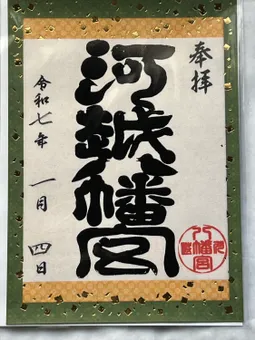 奉拝
河越八幡宮
令和七年 一月 四日
八幡宮